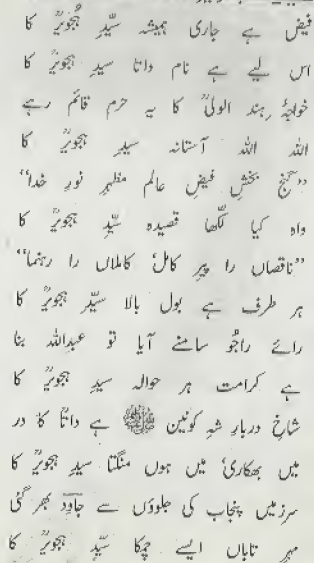 فیض ہے جاری ہمیشہ سیّدِ ہُجویرؒ کا
اس لیے ہے نام داتا سیدِ ہجویرؒ کا
خواجۂ ہند الولیؒ کا یہ حرم قائم رہے
اللہ اللہ آستانہ سیدِ ہجویرؒ کا
"گنج بخشِ فیضِ عالم مظہرِ نورِ خدا"
واہ کیا لکّھا قصیدہ سیّدِ ہجویرؒ کا
"ناقصاں را پیرِ کامل، کاملاں را رہنما"
ہر طرف ہے بول بالا سیّدِ ہجویرؒ کا
رائے راجُو سامنے آیا تو عبداللہ بنا
ہے کرامت ہر حوالہ سیدِ ہجویرؒ کا
شاخِ دربارِ شہِ کونین ﷺ ہے داتاؒ کا در
میں بھکاری، میں ہوں منگتا سیدِ ہجویرؒ کا
سرزمیں پنجاب کی جلوؤں سے جاوِدؔ بھر گئی
مہرِ تاباں ایسے چمکا سیّدِ ہجویرؒ کا